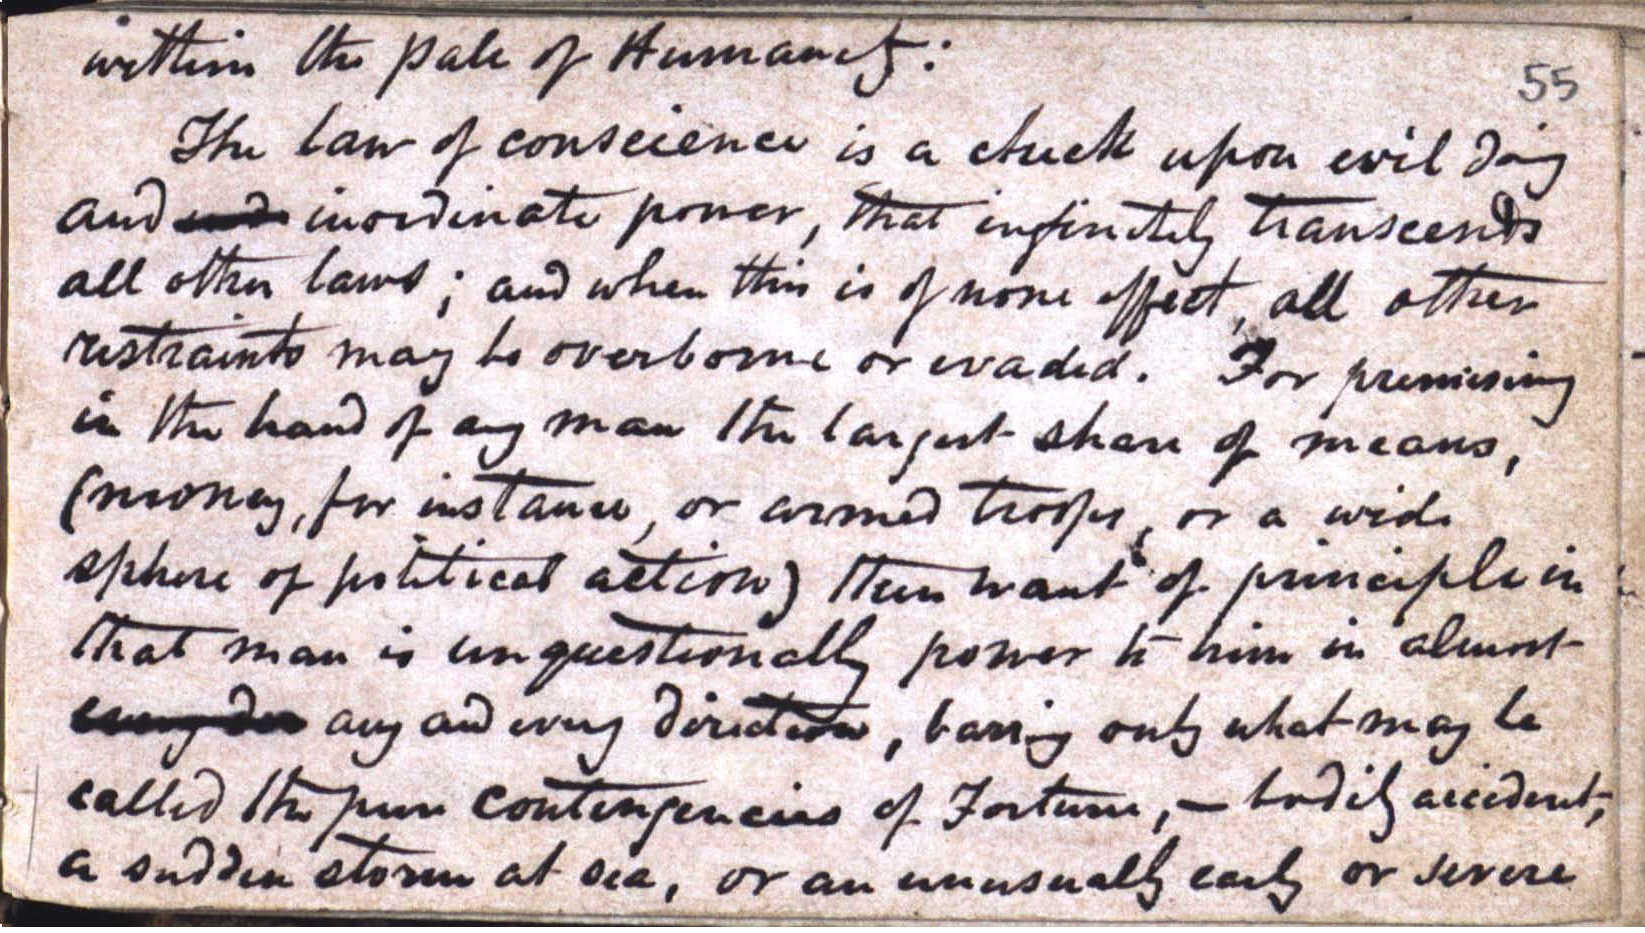 within the pale of Humanity:
55
The law of conscience is a check upon evil doing
and inordinate power, that infinitely transcends
all other laws; and when this is of none effect, all other
restraints may be overborne or evaded. For premising
in the hand of any man the largest share of means,
(money, for instance, or armed troops, or a wide
sphere of political action) then want of principle in
that man is unquestionally power to him in almost
any and every direction, barring only what may be
called the pure contengencies of Fortune, – bodily accident,
a sudden storm at sea, or an unusually early or severe